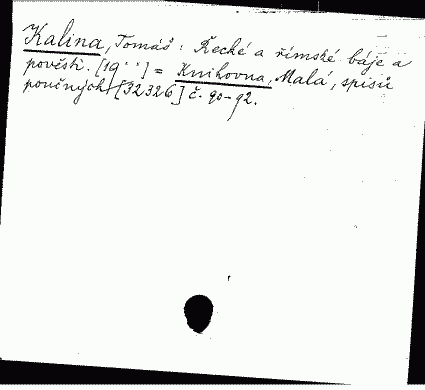 Kalina, Tomáš: Řecké a římské báje a
pověsti. [19··] = Knihovna, Malá, spisů
poučných [32326] č. 90-92.